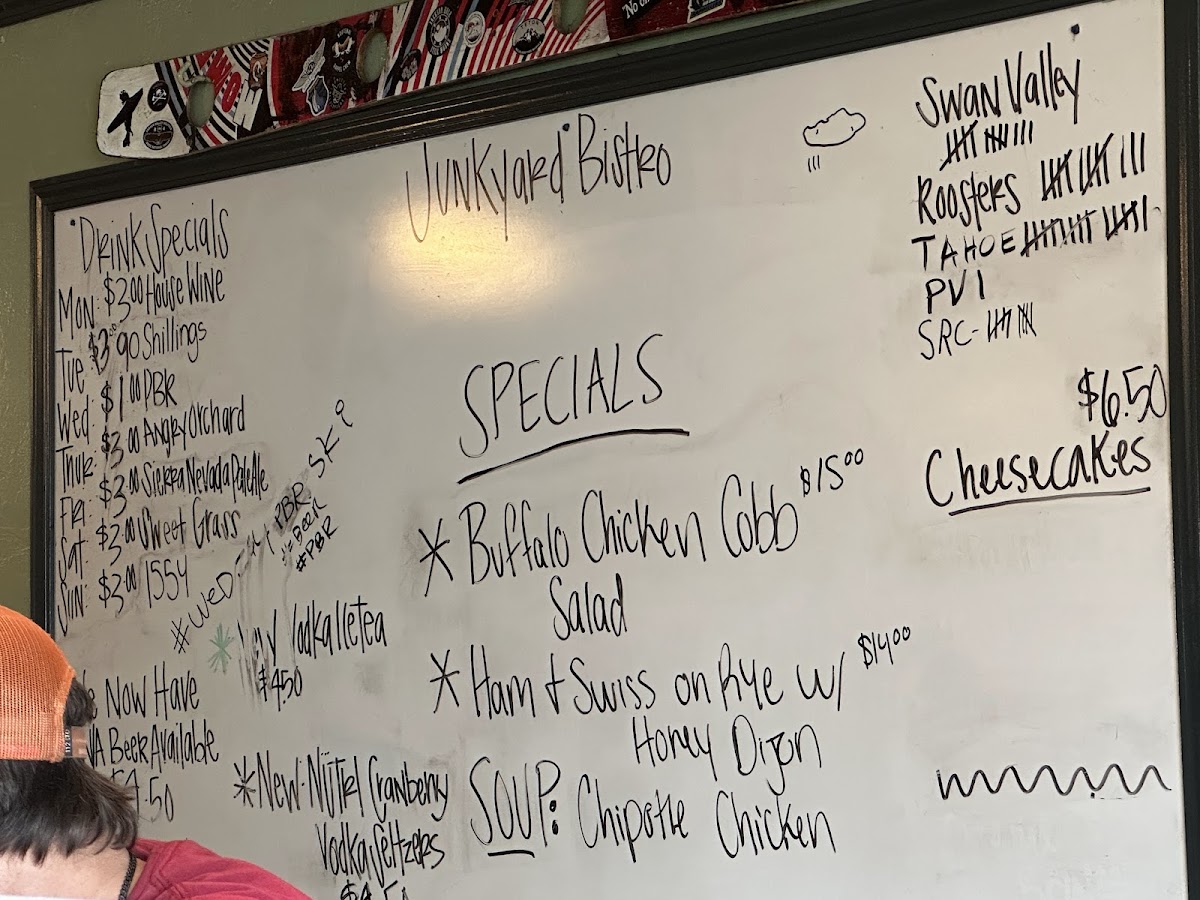 Junkyard Bistro
Drink Specials
Mon: $3.00 House Wine
Tue $3.00 90 Shillings
Wed: $1.00 PBR
Thur: $3.00 Angry Orchard
Fri: $3.00 Sierra Nevada Pale Ale
Sat: $3.00 Sweet Grass
Sun: $3.00 1554
PBR, SKi
#Beer
#PBR
Vodka Ice tea
$4.50
Now Have
NA Beer Available
.50
* New-Nütrl Cranberry
Vodka Seltzers
SPECIALS
* Buffalo Chicken Cobb $15.00
Salad
* Ham + Swiss on Rye w/ $14.00
Honey Dijon
SOUP: Chipotle Chicken
Swan Valley
Roosters
TAHOE
PV I
SRC-
$6.50
Cheesecakes